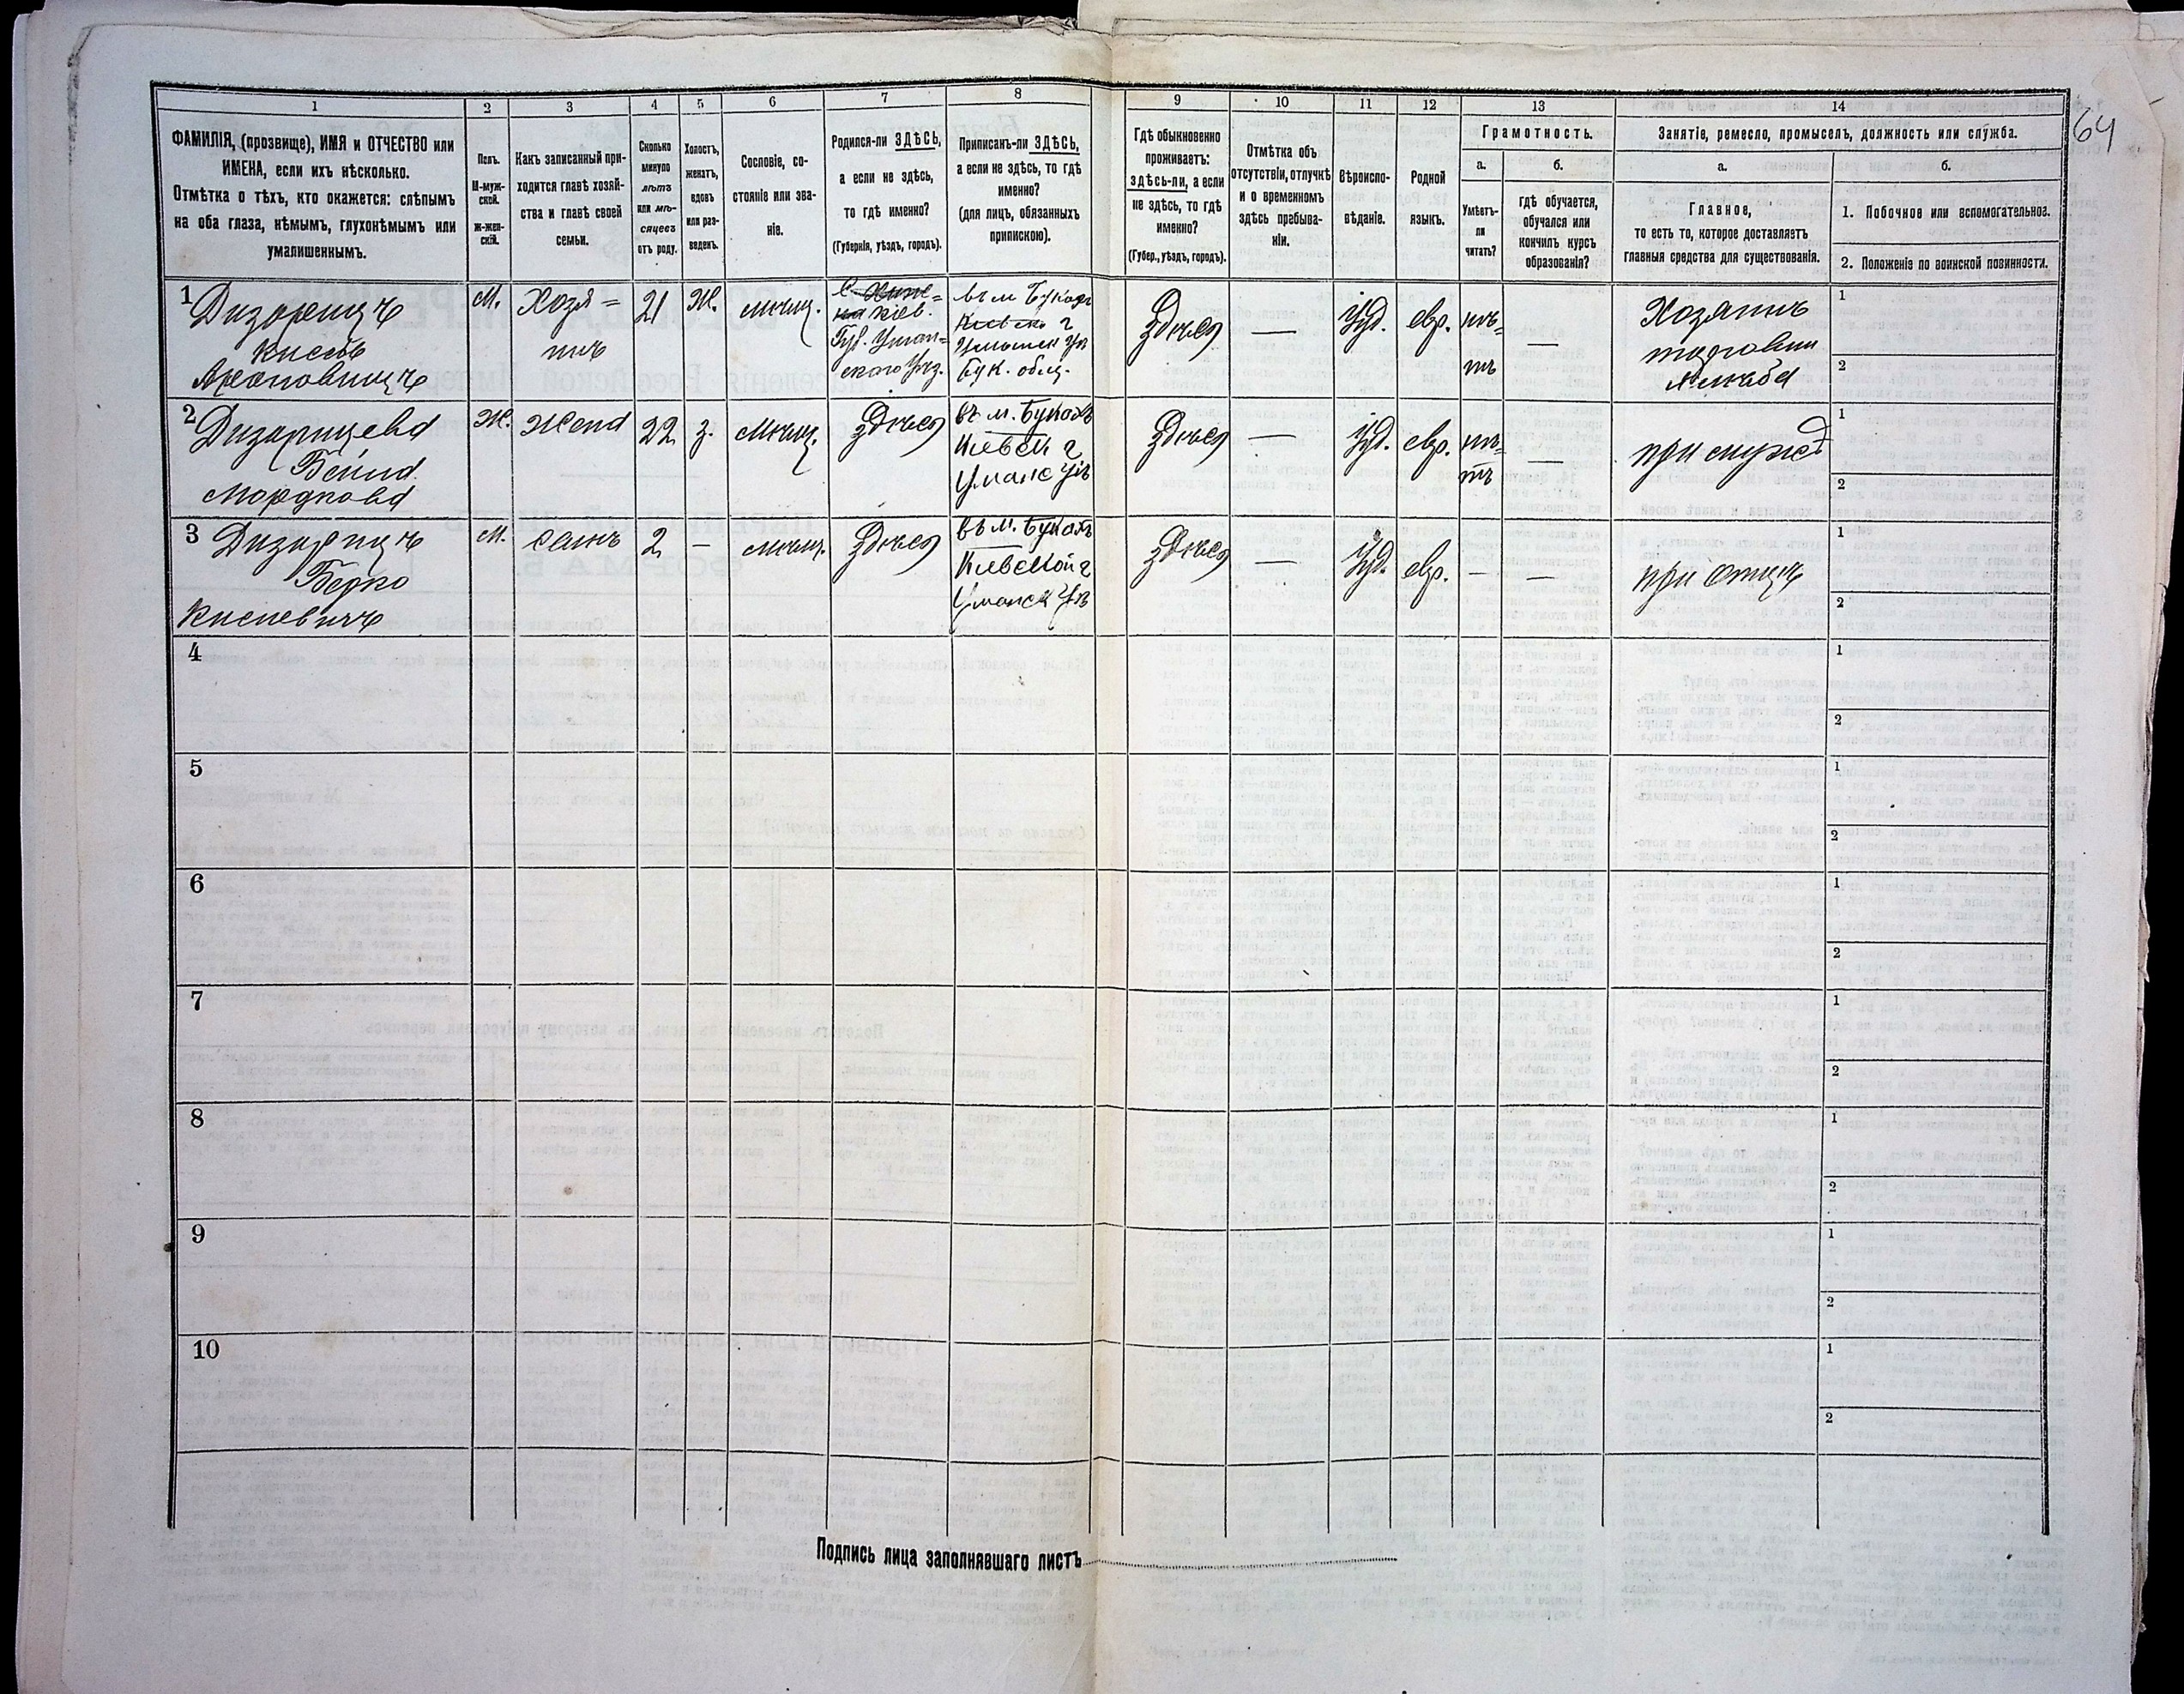 64
1 2 3 4 5 6 7 8 9 10 11 12 13 14
ФАМИЛІЯ, (прозвище), ИМЯ и ОТЧЕСТВО или
ИМЕНА, если ихъ нѣсколько.
Отмѣтка о тѣхъ, кто окажется: слѣпымъ
на оба глаза, нѣмымъ, глухонѣмымъ или
умалишеннымъ.
Полъ.
М-муж-
ской.
Ж-жен-
скій.
Какъ записанный при-
ходится главѣ хозяй-
ства и главѣ своей
семьи.
Сколько
минуло
лѣтъ
или мѣ-
сяцевъ
отъ роду.
Холостъ,
женатъ,
вдовъ
или раз-
веденъ.
Сословіе, со-
стояніе или зва-
ніе.
Родился-ли ЗДѢСЬ,
а если не здѣсь,
то гдѣ именно?
(Губернія, уѣздъ, городъ).
Приписанъ-ли ЗДѢСЬ,
а если не здѣсь, то гдѣ
именно?
(для лицъ, обязанныхъ
припискою).
Гдѣ обыкновенно
проживаетъ:
здѣсь-ли, а если
не здѣсь, то гдѣ
именно?
(Губер., уѣздъ, городъ).
Отмѣтка объ
отсутствіи, отлучкѣ
и о временномъ
здѣсь пребыва-
ніи.
Вѣроиспо-
вѣданіе.
Родной
языкъ.
Грамотность.
а.
Умѣетъ-
ли
читать?
б.
гдѣ обучается,
обучался или
кончилъ курсъ
образованія?
Занятіе, ремесло, промыселъ, должность или служба.
а.
Главное,
то есть то, которое доставляетъ
главныя средства для существованія.
б.
1. Побочное или вспомогательное.
2. Положеніе по воинской повинности.
1
Дизарицъ
Киселъ
Ароновичъ
М.
Хозя=
инъ
21
Ж.
мѣщ.
Кіев.
Губ. Уман=
скаго Уѣз.
въ м Букахъ
Кіевск г
Бук. общ.
Здѣсь
—
Іуд.
евр.
нѣ=
тъ
—
Хозяинъ
торговли
хлѣба
1
2
2
Дизарицева
Бейла
Мордкова
Ж.
Жена
22
з.
мѣщ.
Здѣсь
въ м. Букахъ
Кіевск г
Уманс Уѣз
Здѣсь
—
Іуд.
евр.
нѣ=
тъ
—
при мужѣ
1
2
3
Дизарицъ
Берко
Киселевичъ
М.
сынъ
2
—
мѣщ.
Здѣсь
въ м. Букахъ
Кіевской г
Уманск Уѣз
Здѣсь
—
Іуд.
евр.
—
—
при отцѣ
1
2
4
1
2
5
1
2
6
1
2
7
1
2
8
1
2
9
1
2
10
1
2
Подпись лица заполнявшаго листъ